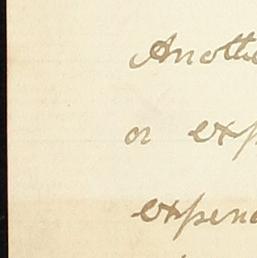 Anothe
or exp
expen